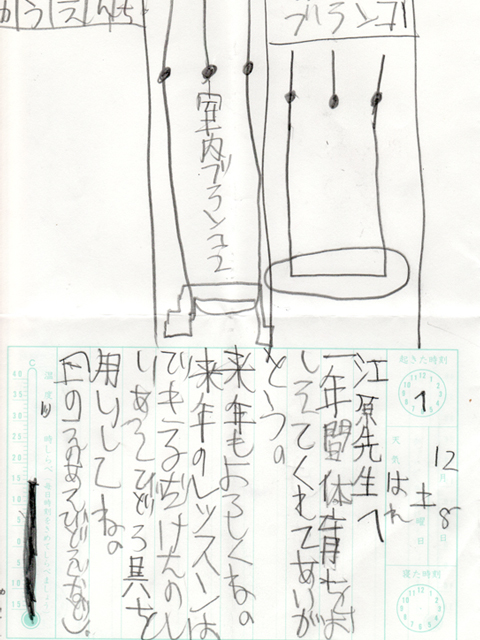 うえんち
ブランコ1
室内ブランコ2
起きた時刻
12月8日
土曜日
天気 はれ
寝た時刻
江原先生へ
一年間体育をお
しえてくれてありが
とう。
来年もよろしくね。
来年のレッスンは
できるだけたのし
いあそびどう具を
用いしてね。
℃
40
35
30
25
20
15
10